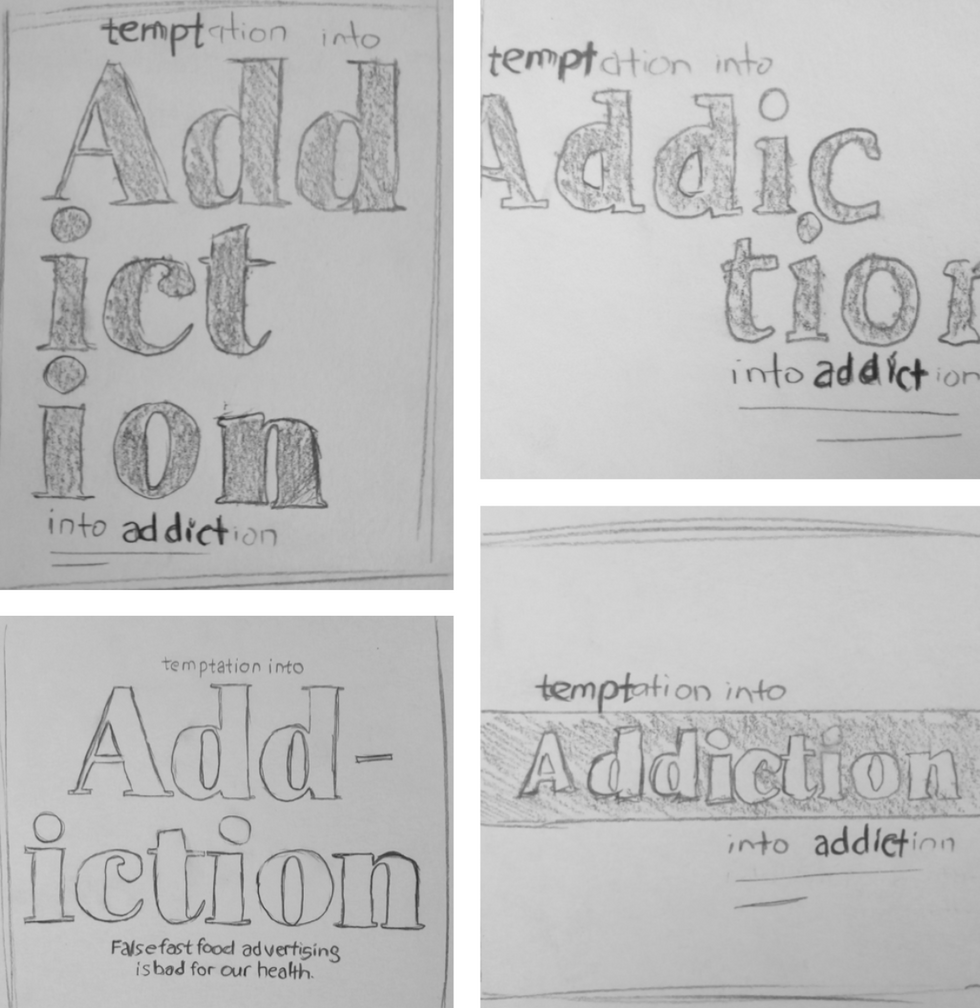 temptation into
Add
ict
ion
into addiction
temptation into
Addic
tion
into addiction
temptation into
Add-
iction
False fast food advertising
is bad for our health.
temptation into
Addiction
into addiction